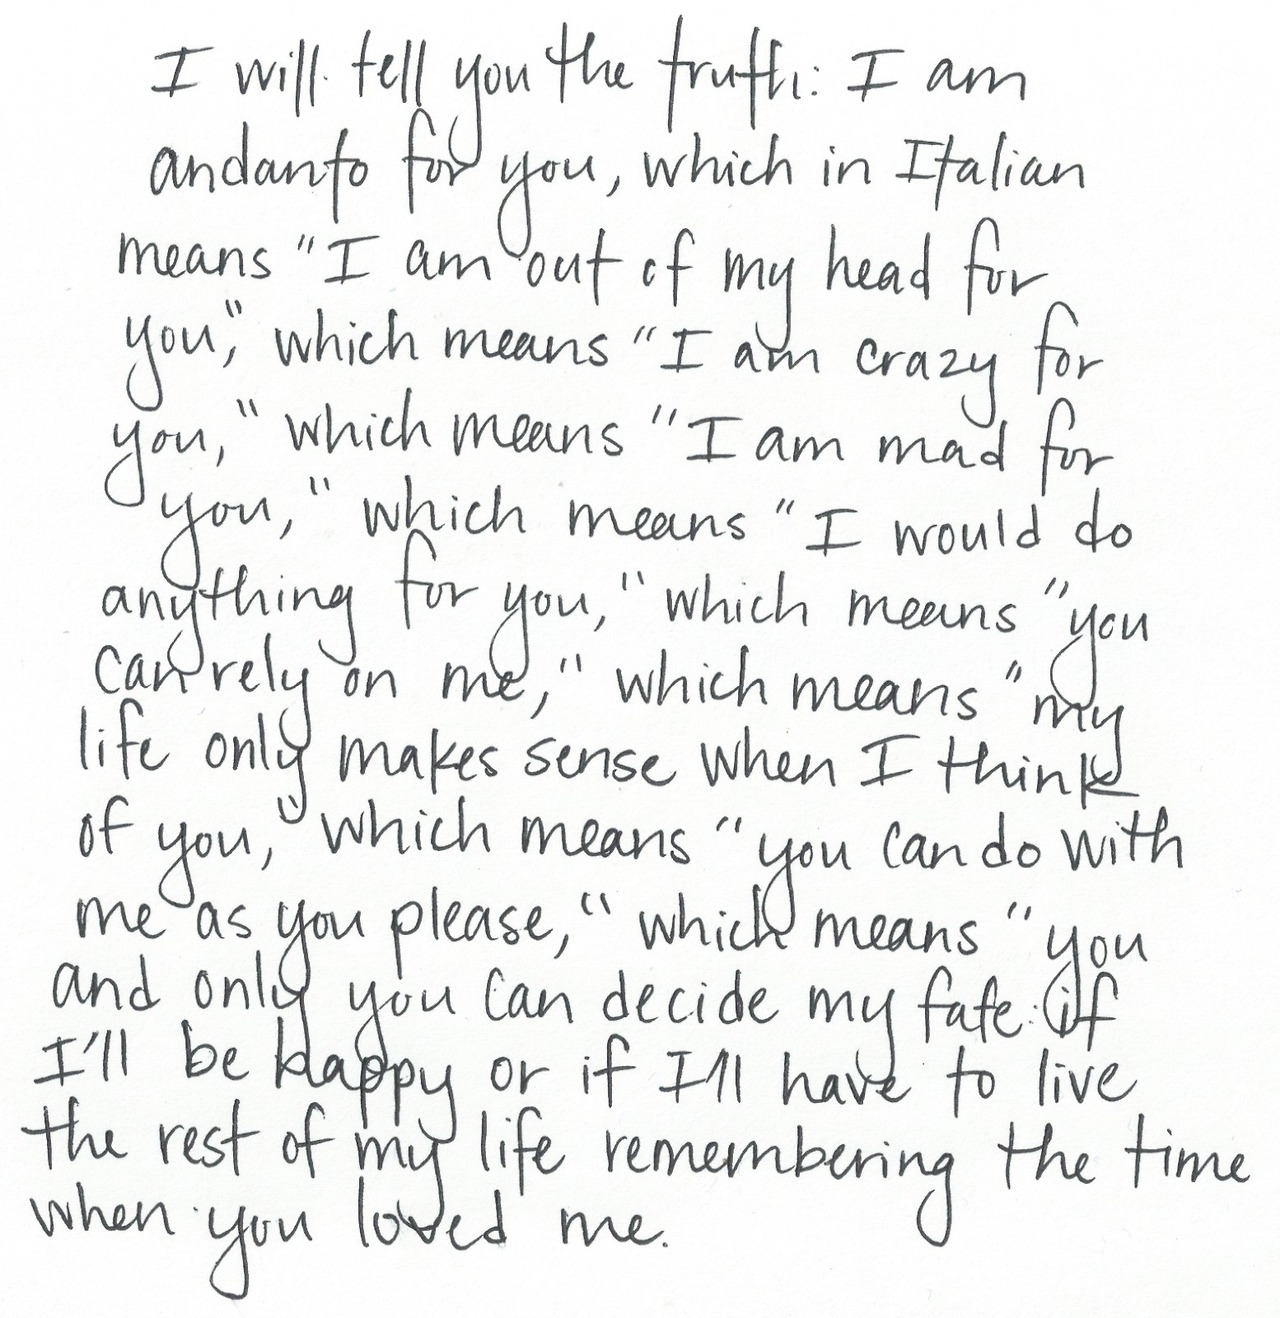 I will tell you the truth: I am
andanto for you, which in Italian
means "I am out of my head for
you," which means "I am crazy for
you," which means "I am mad for
you," which means "I would do
anything for you," which means "you
can rely on me," which means "my
life only makes sense when I think
of you," which means "you can do with
me as you please," which means "you
and only you can decide my fate: if
I'll be happy or if I'll have to live
the rest of my life remembering the time
when you loved me.